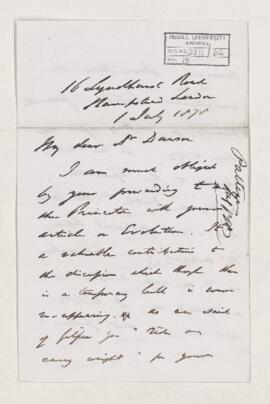 McGILL UNIVERSITY
ARCHIVES
ACC. NO. 2211 / 62
REF. 18
16 Lyndhurst Road
Hampstead London
1 July 1878
My dear Dr Dawson
I am much obliged
by your forwarding to me
the Princeton with your
article on Evolution. It is
a valuable contribution to
the discussion which though there
is a temporary lull is ever
re-appearing. as
of "
carry weight" for your